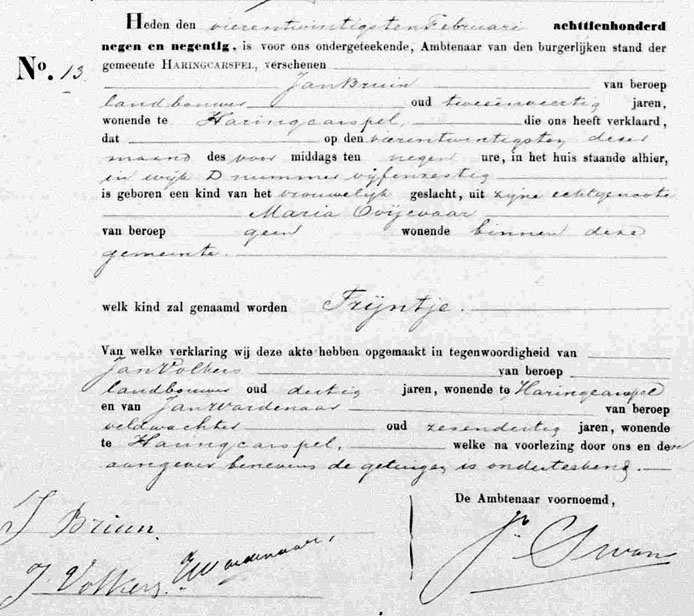 Heden den vierentwintigsten Februari achttienhonderd
negen en negentig, is voor ons ondergeteekende, Ambtenaar van den burgerlijken stand der
gemeente HARINGCARSPEL, verschenen
No. 13
Jan Bruin van beroep
landbouwer oud tweeënveertig jaren,
wonende te Haringcarspel, die ons heeft verklaard,
dat op den vierentwintigsten dezer
maand des voor middags ten negen ure, in het huis staande alhier,
in wijk D nummer vijfenzestig
is geboren een kind van het vrouwelijk geslacht, uit zijne echtgenoote
Maria
van beroep geen wonende binnen deze
gemeente.
welk kind zal genaamd worden Trijntje.
Van welke verklaring wij deze akte hebben opgemaakt in tegenwoordigheid van
Jan Volkers van beroep
landbouwer oud dertig jaren, wonende te Haringcarspel
en van Jan Wardenaar van beroep
veldwachter oud zesendertig jaren, wonende
te Haringcarspel, welke na voorlezing door ons en den
aangever benevens de getuigen is onderteekend.
De Ambtenaar voornoemd,
J Bruin.
J. Volkers. Wardenaar.
Swan